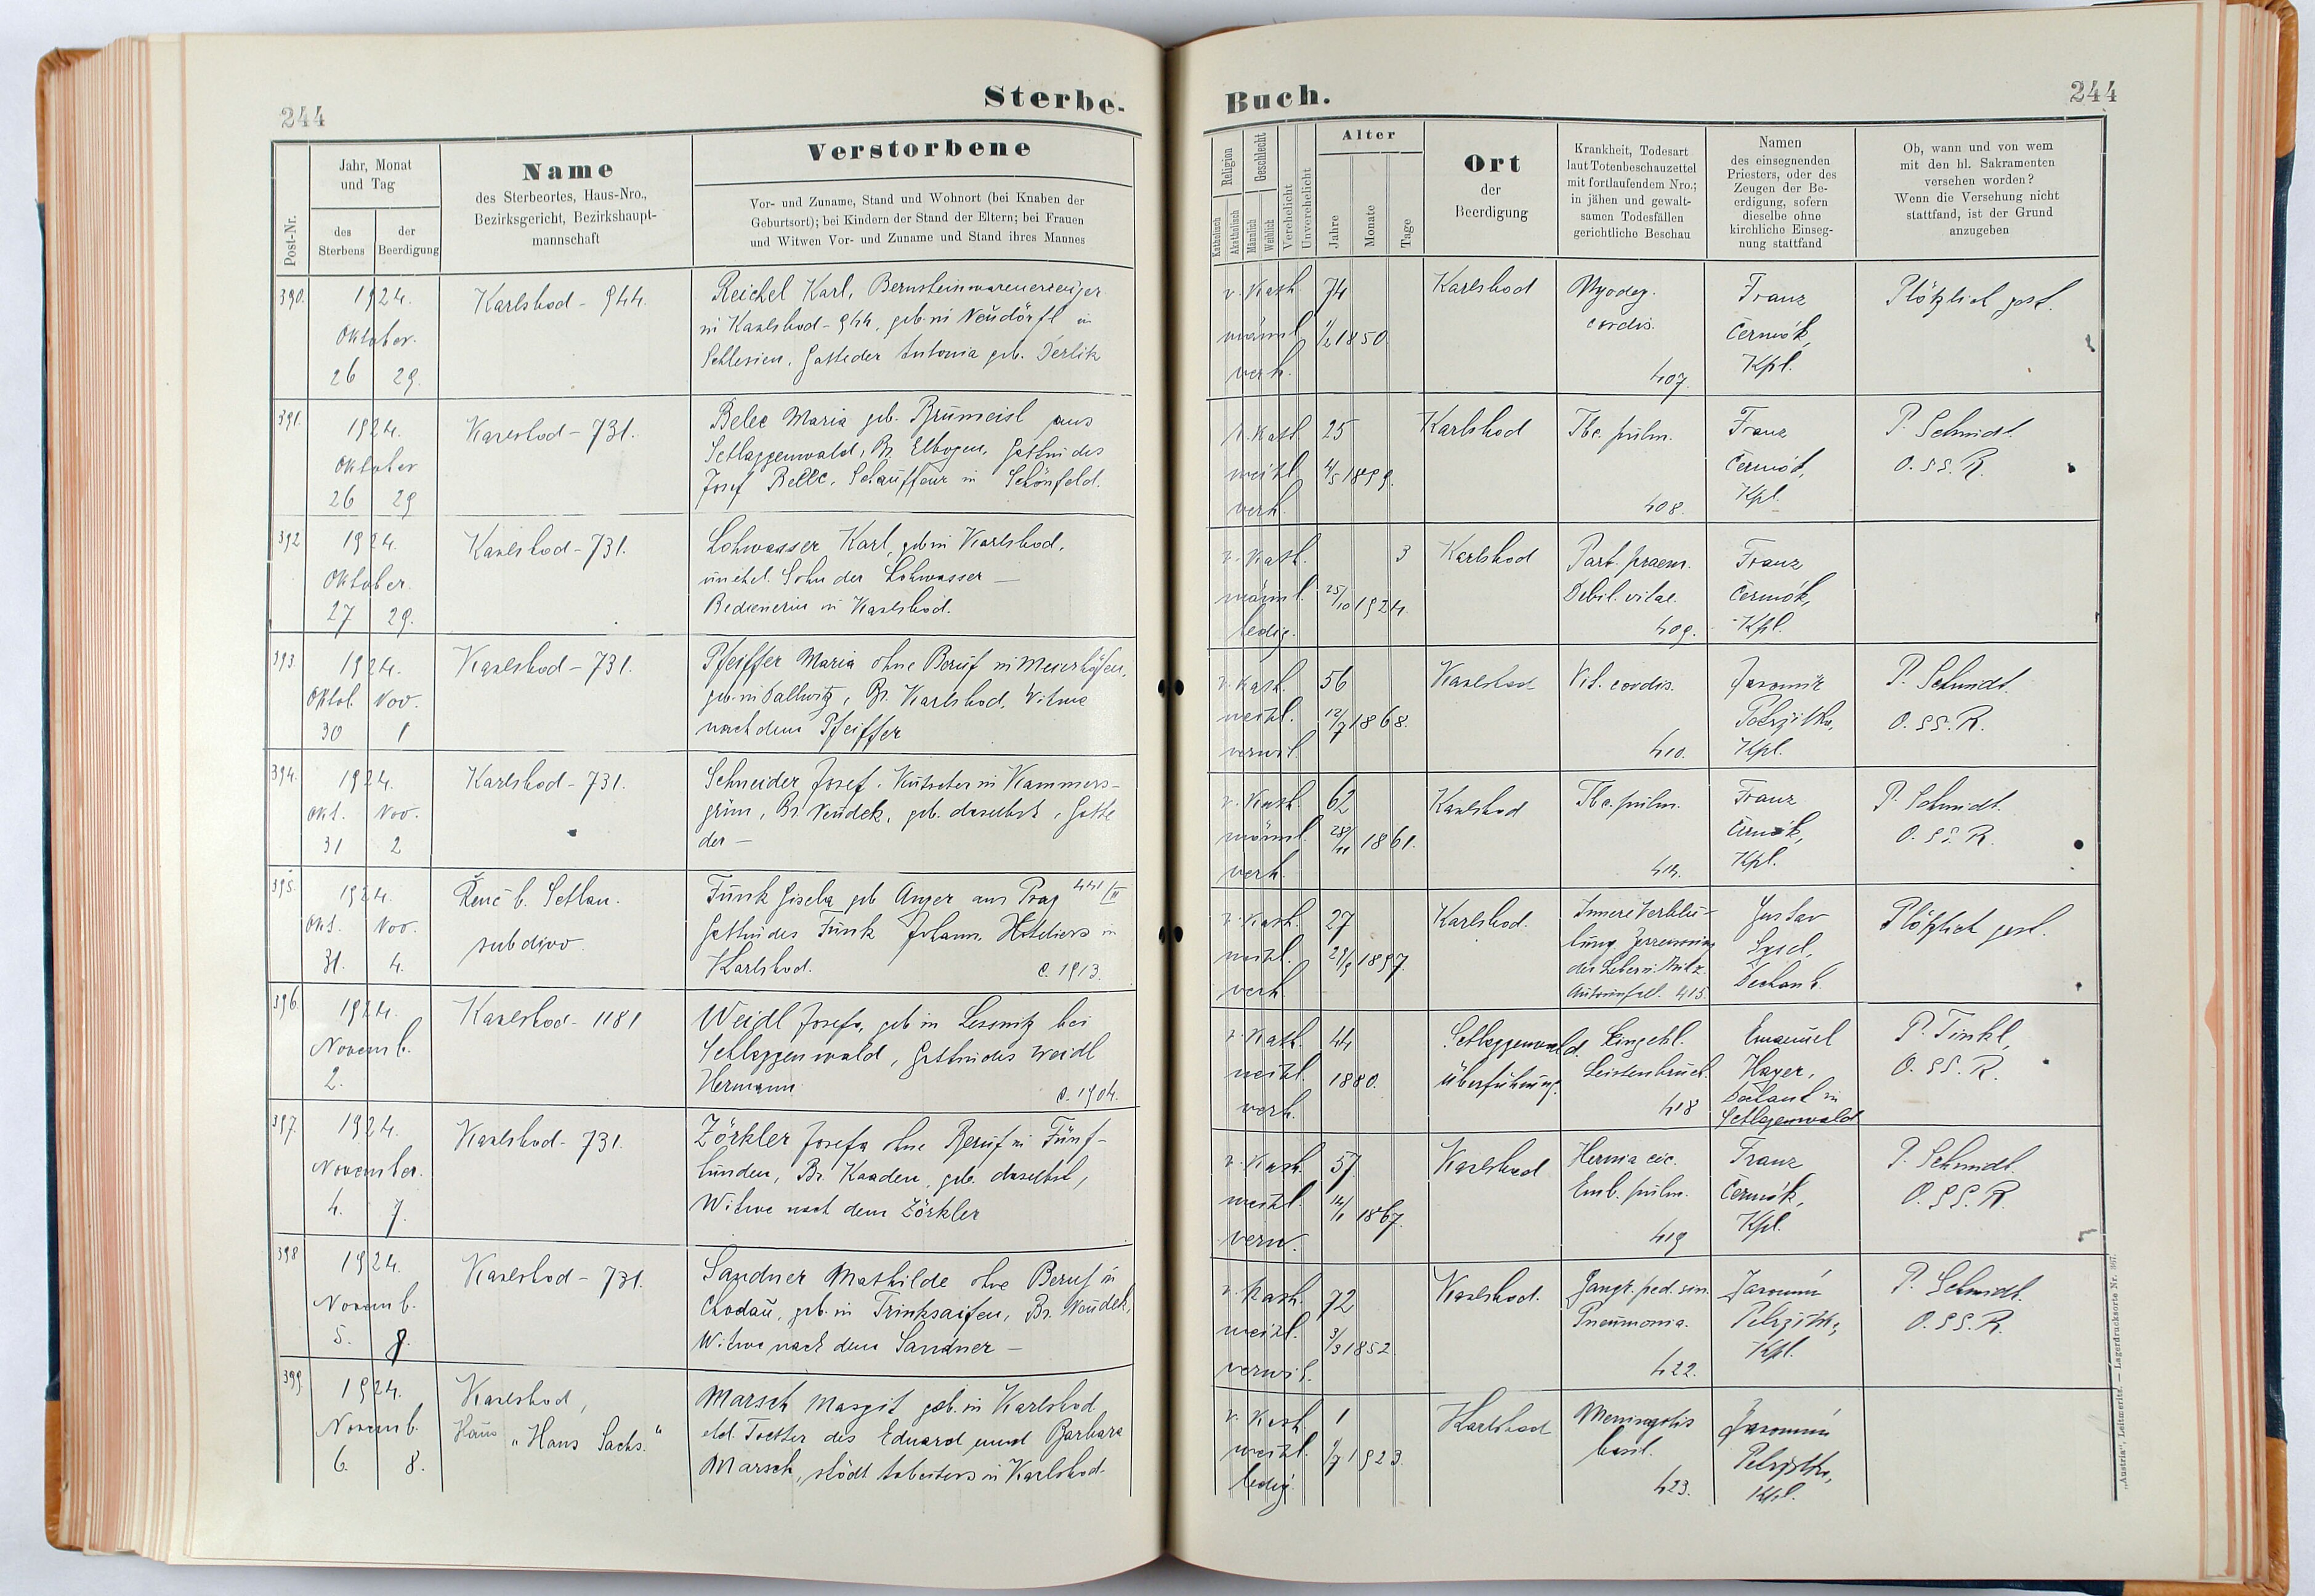 244
Sterbe-
Post-Nr.
Jahr, Monat
und Tag
des
Sterbens
der
Beerdigung
Name
des Sterbeortes, Haus-Nro.,
Bezirksgericht, Bezirkshaupt-
mannschaft
Verstorbene
Vor- und Zuname, Stand und Wohnort (bei Knaben der
Geburtsort); bei Kindern der Stand der Eltern; bei Frauen
und Witwen Vor- und Zuname und Stand ihres Mannes
390.
1924.
Oktober.
26 29.
Karlsbad - 944.
Reichel Karl, Bernsteinwarenerzeuger
in Karlsbad - 944, geb. in Neudörfl in
Schlesien, Gatte der Antonia geb.
391.
1924.
Oktober
26 29
Karlsbad - 731.
Belec Maria geb. aus
Schlaggenwald, Bz. Elbogen, Gattin des
Josef Belec, Schauffeur in Schönfeld.
392
1924.
Oktober.
27 29.
Karlsbad - 731.
Lohwasser Karl, geb. in Karlsbad,
unehel. Sohn der Lohwasser —
Bedienerin in Karlsbad.
393.
1924.
Oktob. Nov.
30 1
Karlsbad - 731.
Pfeiffer Maria ohne Beruf in Meierhöfen,
geb. in Dallwitz, Bz. Karlsbad, Witwe
nach dem Pfeiffer
394.
1924.
Okt. Nov.
31 2
Karlsbad - 731.
Schneider Josef, Kutscher in Kammers-
grün, Bz. Neudek, geb. daselbst, Gatte
der —
395.
1924.
Okt. Nov.
31. 4.
Řenč b. Schlan.
subdivo
Funk Gisela geb. Anger aus Prag 441/II
Gattin des Funk Johann, Hoteliers in
Karlsbad. C. 1913.
396.
1924.
Novemb.
2.
Karlsbad - 1181
Weidl Josefa, geb. in Lessnitz bei
Schlaggenwald, Gattin des Weidl
Hermann C. 1904.
397.
1924.
November.
4. 7.
Karlsbad - 731.
Zörkler Josefa ohne Beruf in Fünf-
hunden, Bz. Kaaden, geb. daselbst,
Witwe nach dem Zörkler
398
1924.
Novemb.
5. 8.
Karlsbad - 731.
Sandner Mathilde ohne Beruf in
Chodau, geb. in Trinksaifen, Bz. Neudek,
Witwe nach dem Sandner —
399.
1924.
Novemb.
6. 8.
Karlsbad,
Haus „Hans Sachs."
Marsch Margit geb. in Karlsbad
ehel. Tochter des Eduard und Barbara
Marsch, städt. Arbeiters in Karlsbad.
Buch.
244
Religion
Katholisch
Akatholisch
Geschlecht
Männlich
Weiblich
Verehelicht
Unverehelicht
Alter
Jahre
Monate
Tage
Ort
der
Beerdigung
Krankheit, Todesart
laut Totenbeschauzettel
mit fortlaufendem Nro.;
in jähen und gewalt-
samen Todesfällen
gerichtliche Beschau
Namen
des einsegnenden
Priesters, oder des
Zeugen der Be-
erdigung, sofern
dieselbe ohne
kirchliche Einseg-
nung stattfand
Ob, wann und von wem
mit den hl. Sakramenten
versehen worden?
Wenn die Versehung nicht
stattfand, ist der Grund
anzugeben
r. Kath. 74
männl. 1/2 1850.
verh.
Karlsbad
Myodeg.
cordis.
407.
Franz
Čermák,
Kpl.
Plötzlich gest.
r. Kath. 25
weibl. 4/5 1899.
verh.
Karlsbad
Tbc. pulm.
408.
Franz
Čermák,
Kpl.
P. Schmidt.
O. SS. R.
r. Kath. 3
männl. 25/10 1924.
ledig.
Karlsbad
Part. praem.
Debil. vitae.
409.
Franz
Čermák,
Kpl.
r. Kath. 56
weibl. 12/7 1868.
verwit.
Karlsbad
Vit. cordis.
410.
Kpl.
P. Schmidt.
O. SS. R.
r. Kath. 62
männl. 28/11 1861.
verh.
Karlsbad
Tbc. pulm.
Franz
Čermák,
Kpl.
P. Schmidt.
O. SS. R.
r. Kath. 27
weibl. 29/9 1897.
verh.
Karlsbad.
Innere Verblu-
tung, Zerreissung
der Leber u. Milz.
Autounfall. 415.
Gustav
Dechant.
Plötzlich gest.
r. Kath. 44
weibl. 1880.
verh.
Schlaggenwald.
Überführung.
Eingekl.
Leistenbruch.
418
Emanuel
Hayer,
Dechant in
Schlaggenwald
P. Tinkl,
O. SS. R.
r. Kath. 57
weibl. 14/1 1867.
verw.
Karlsbad
Hernia
Emb. pulm.
419
Franz
Čermák,
Kpl.
P. Schmidt.
O. SS. R.
r. Kath. 72
weibl. 3/3 1852.
verwit.
Karlsbad.
Gangr. ped. sin.
Pneumonia.
422.
Kpl.
P. Schmidt.
O. SS. R.
r. Kath. 1
weibl. 1/7 1923.
ledig.
Karlsbad
Meningitis
basil.
423.
Kpl.
„Austria", Leitmeritz. — Lagerdrucksorte Nr.